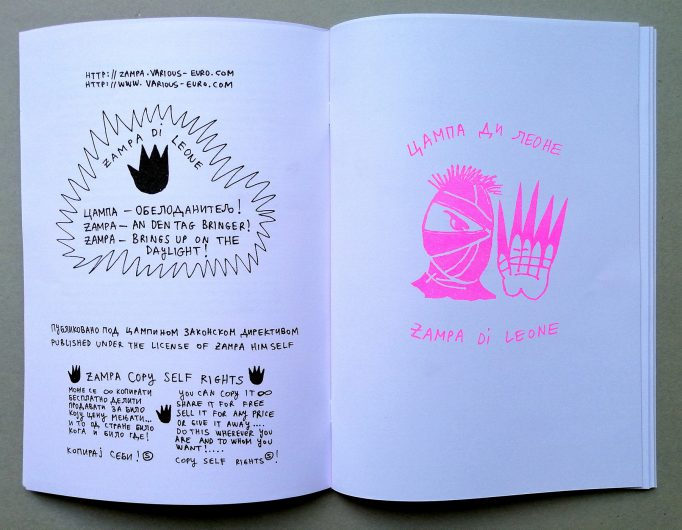 HTTP://ZAMPA.VARIOUS-EURO.COM
HTTP://WWW.VARIOUS-EURO.COM
ZAMPA Di LEONE
ЦАМПА – ОБЕЛОДАНИТЕЉ!
ZAMPA – AN DEN TAG BRINGER!
ZAMPA – BRINGS UP ON THE
DAYLIGHT!
ПУБЛИКОВАНО ПОД ЦАМПИНОМ ЗАКОНСКОМ ДИРЕКТИВОМ
PUBLISHED UNDER THE LICENSE OF ZAMPA HIMSELF
ZAMPA COPY SELF RIGHTS
МОЖЕ СЕ ∞ КОПИРАТИ
БЕСПЛАТНО ДЕЛИТИ
ПРОДАВАТИ ЗА БИЛО
КОЈУ ЦЕНУ МЕЊАТИ...
И ТО ОД СТРАНЕ БИЛО
КОГА И БИЛО ГДЕ!
КОПИРАЈ СЕБИ! Ⓢ
YOU CAN COPY IT ∞
SHARE IT FOR FREE
SELL IT FOR ANY PRICE
OR GIVE IT AWAY....
DO THIS WHEREVER YOU
ARE AND TO WHOM YOU
WANT!....
COPY SELF RIGHTS Ⓢ!
ЦАМПА ДИ ЛЕОНЕ
ZAMPA Di LEONE